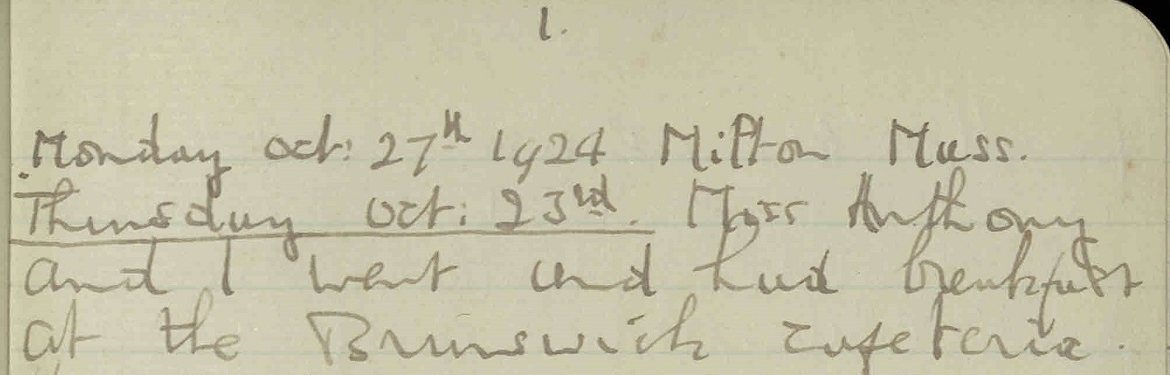 1.
Monday Oct: 27th 1924 Milton Mass.
Thursday Oct: 23rd. Miss Anthony
and I went and had breakfast
at the Brunswick Cafeteria.